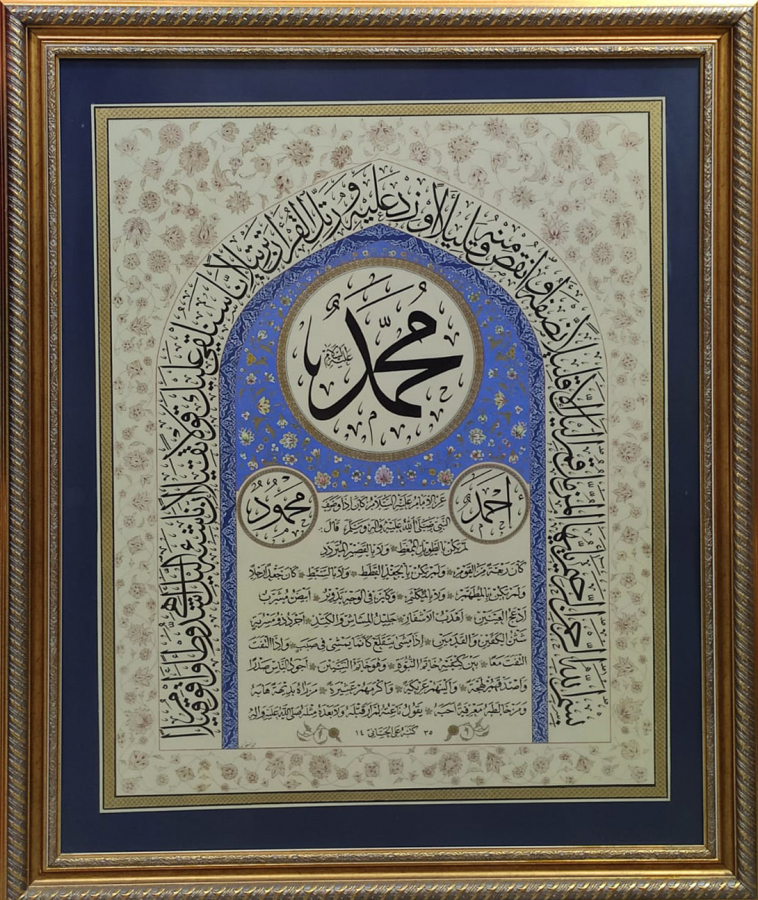 بسم الله الرحمن الرحيم يا أيها المزمل قم الليل إلا قليلا نصفه أو انقص منه قليلا أو زد عليه ورتل القرآن ترتيلا إنا سنلقي عليك قولا ثقيلا إن ناشئة الليل هي أشد وطأ وأقوم قيلا
محمد
أحمد
محمود
عن الإمام علي عليه السلام كان إذا وصف
النبي صلى الله عليه وآله وسلم قال
لم يكن بالطويل الممغط ولا بالقصير المتردد
كان ربعة من القوم ولم يكن بالجعد القطط ولا بالسبط كان جعدا رجلا
ولم يكن بالمطهم ولا بالمكلثم وكان في الوجه تدوير أبيض مشرب
أدعج العينين أهدب الأشفار جليل المشاش والكتد أجرد ذو مسربة
شثن الكفين والقدمين إذا مشى يتقلع كأنما يمشي في صبب وإذا التفت
التفت معا بين كتفيه خاتم النبوة وهو خاتم النبيين أجود الناس صدرا
وأصدقهم لهجة وألينهم عريكة وأكرمهم عشيرة من رآه بديهة هابه
ومن خالطه معرفة أحبه يقول ناعته لم أر قبله ولا بعده مثله صلى الله عليه وآله
كتبه علي ١٤ ٣٥